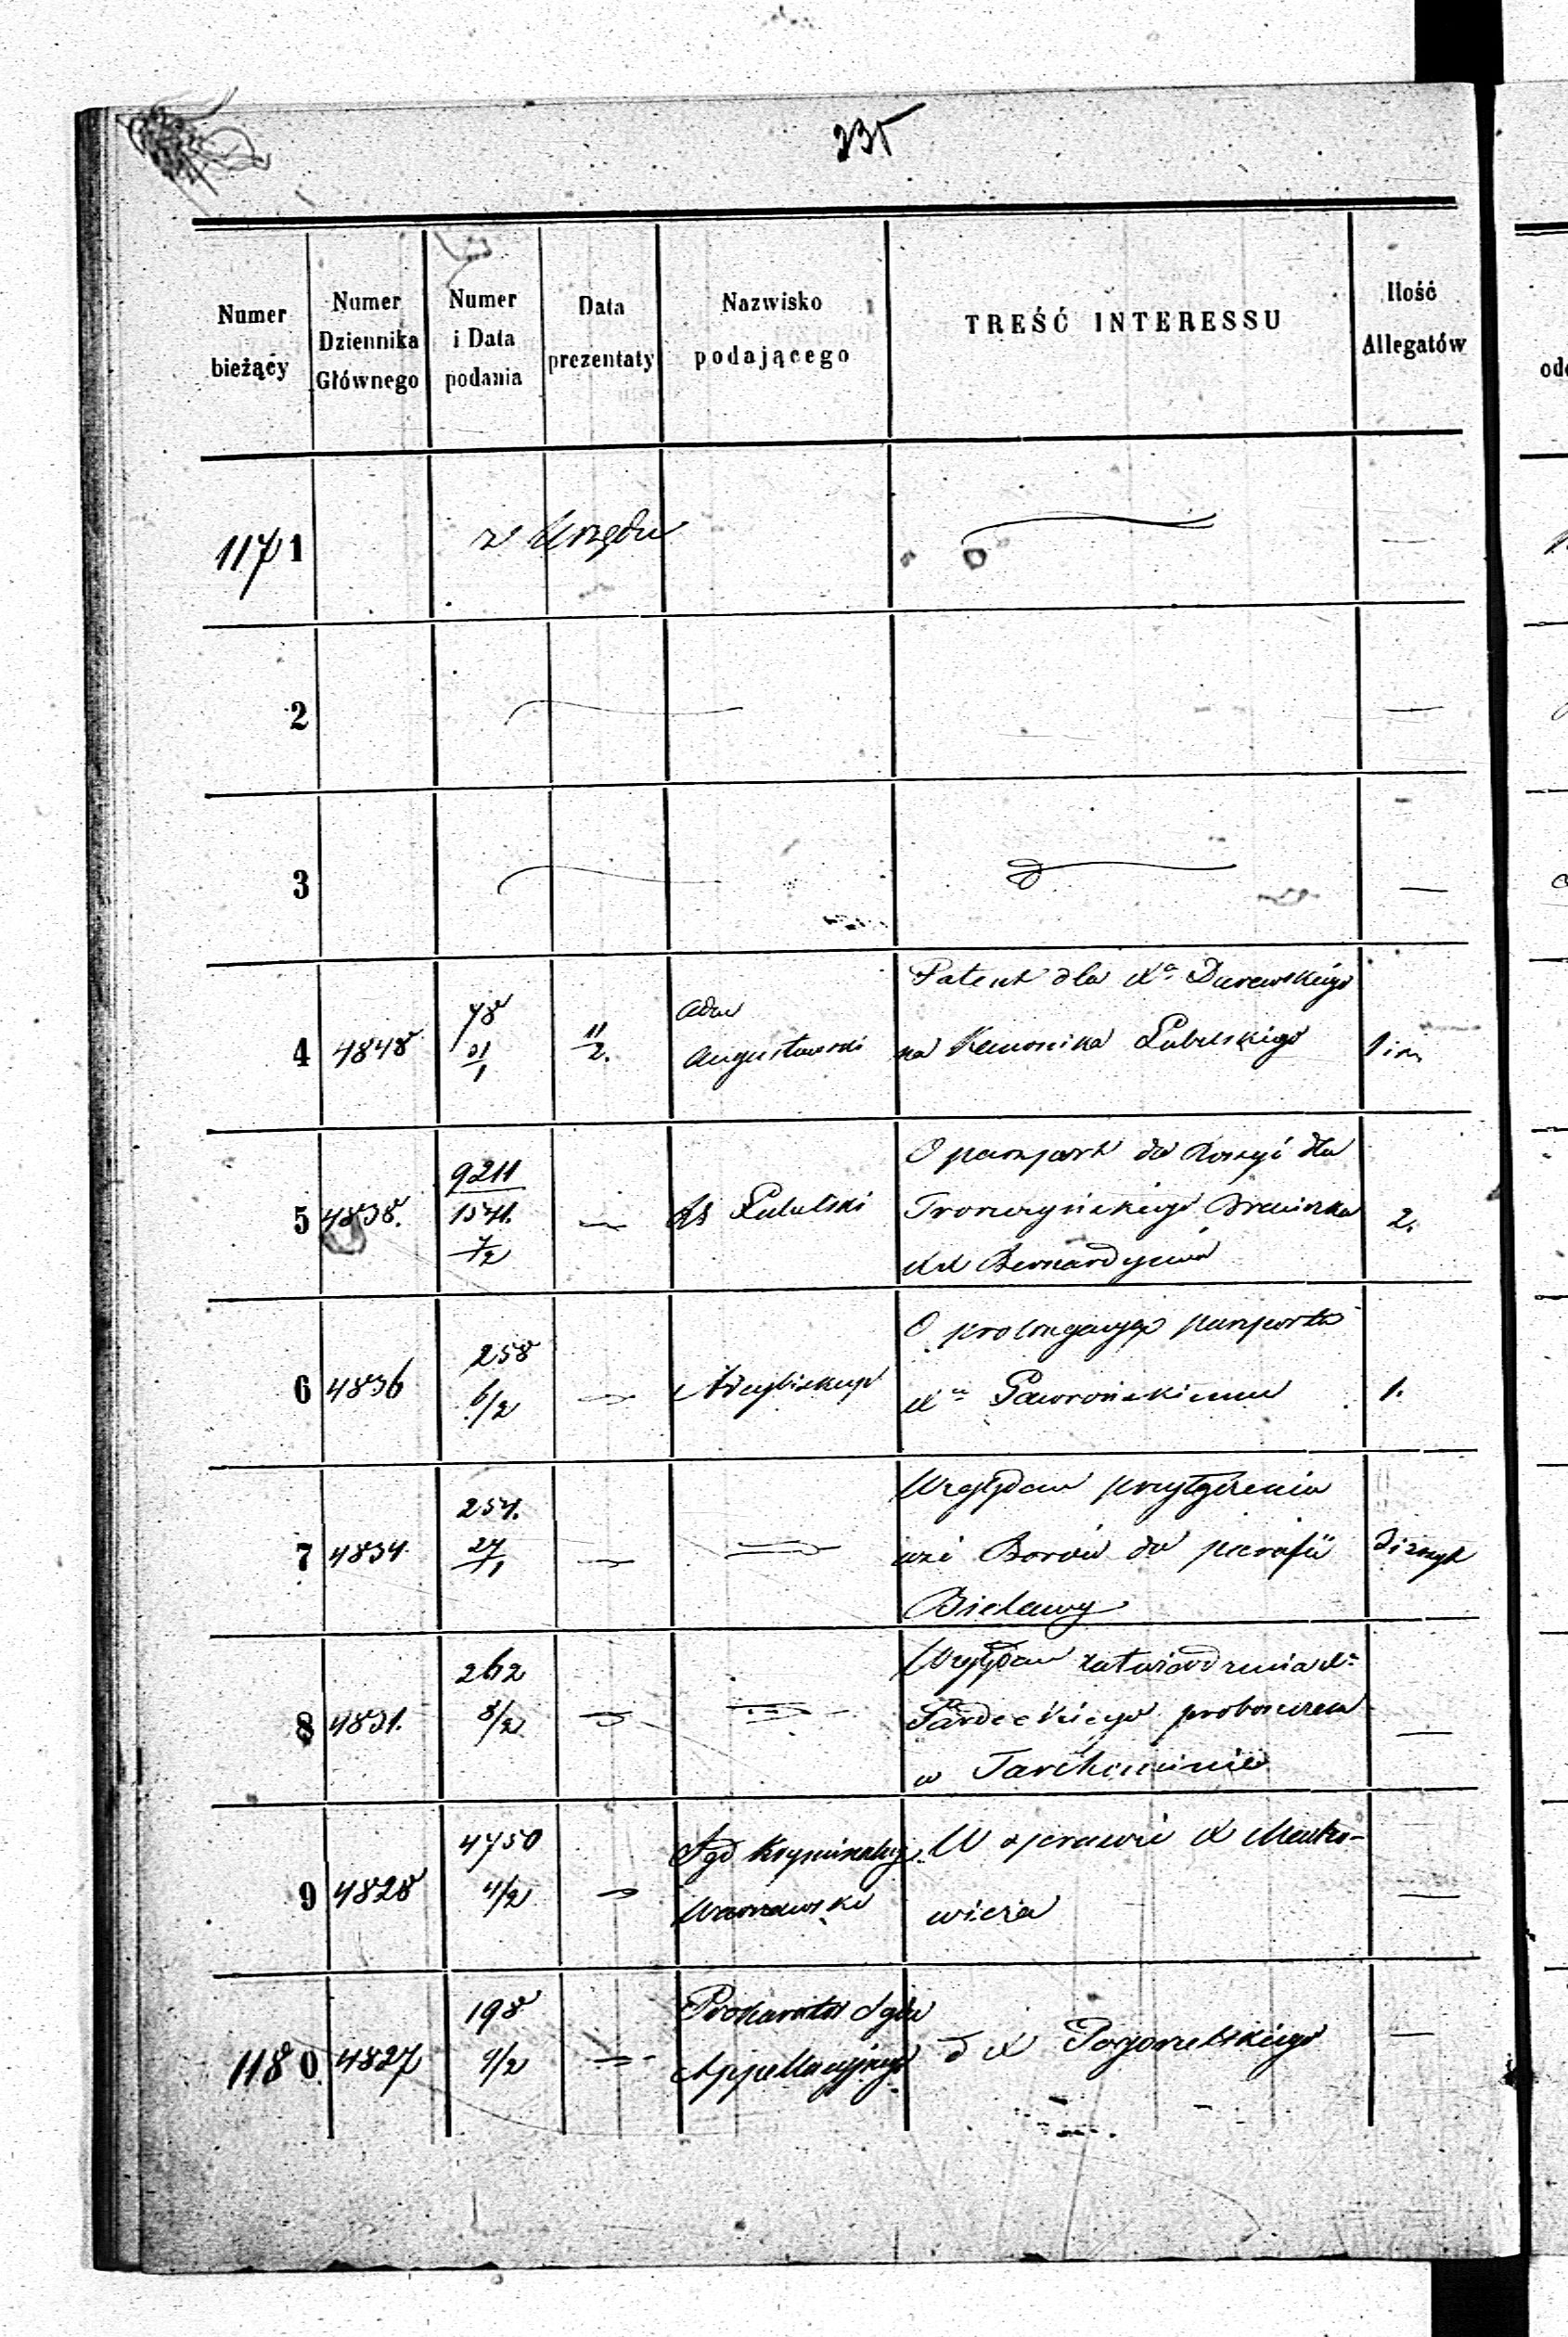 235
Numer bieżący
Numer Dziennika Głównego
Numer i Data podania
Data prezentaty
Nazwisko podającego
TREŚĆ INTERESSU
Ilość Allegatów
1171 z Urzędu —
2 — —
3 — —
4 4848 78 31/1 11/2. Adm Augustowski
Patent dla Xa
na Kanonika Lubelskiego
5 4838. 9211 1541. 7/2 — Lubelski
O paszport do Rossyi dla
XX Bernardynów
2.
6 4836 258 6/2 — Arcybiskup
O prolongacyą paszportu
Xu Gawrońskiemu
1.
7 4834 254. 27/1 — —
Względem przyłączenia
wsi Borów do parafii
Bielawy
8 4831. 262 8/2 — —
Względem zatwierdzenia Xa
proboszcza
w Tarchominie
—
9 4828 4750 4/2 — Sąd Kryminalny
Warszawski
W sprawie X Mako-
wicza
—
1180 4827 198 9/2 — Prokurator Sądu
Appellacyjnego
d X Pogorzelskiego
—